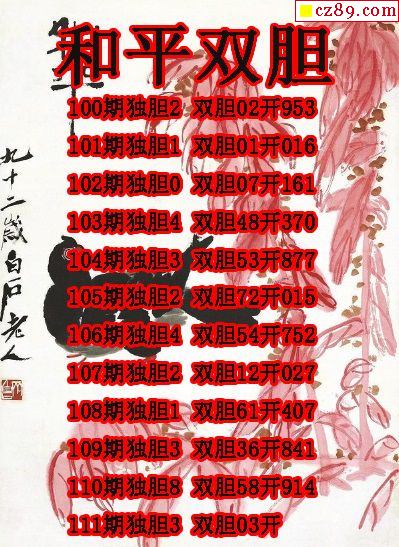 cz89.com
和平双胆
100期独胆2 双胆02开953
101期独胆1 双胆01开016
102期独胆0 双胆07开161
103期独胆4 双胆48开370
104期独胆3 双胆53开877
105期独胆2 双胆72开015
106期独胆4 双胆54开752
107期独胆2 双胆12开027
108期独胆1 双胆61开407
109期独胆3 双胆36开841
110期独胆8 双胆58开914
111期独胆3 双胆03开
九十二岁白石老人